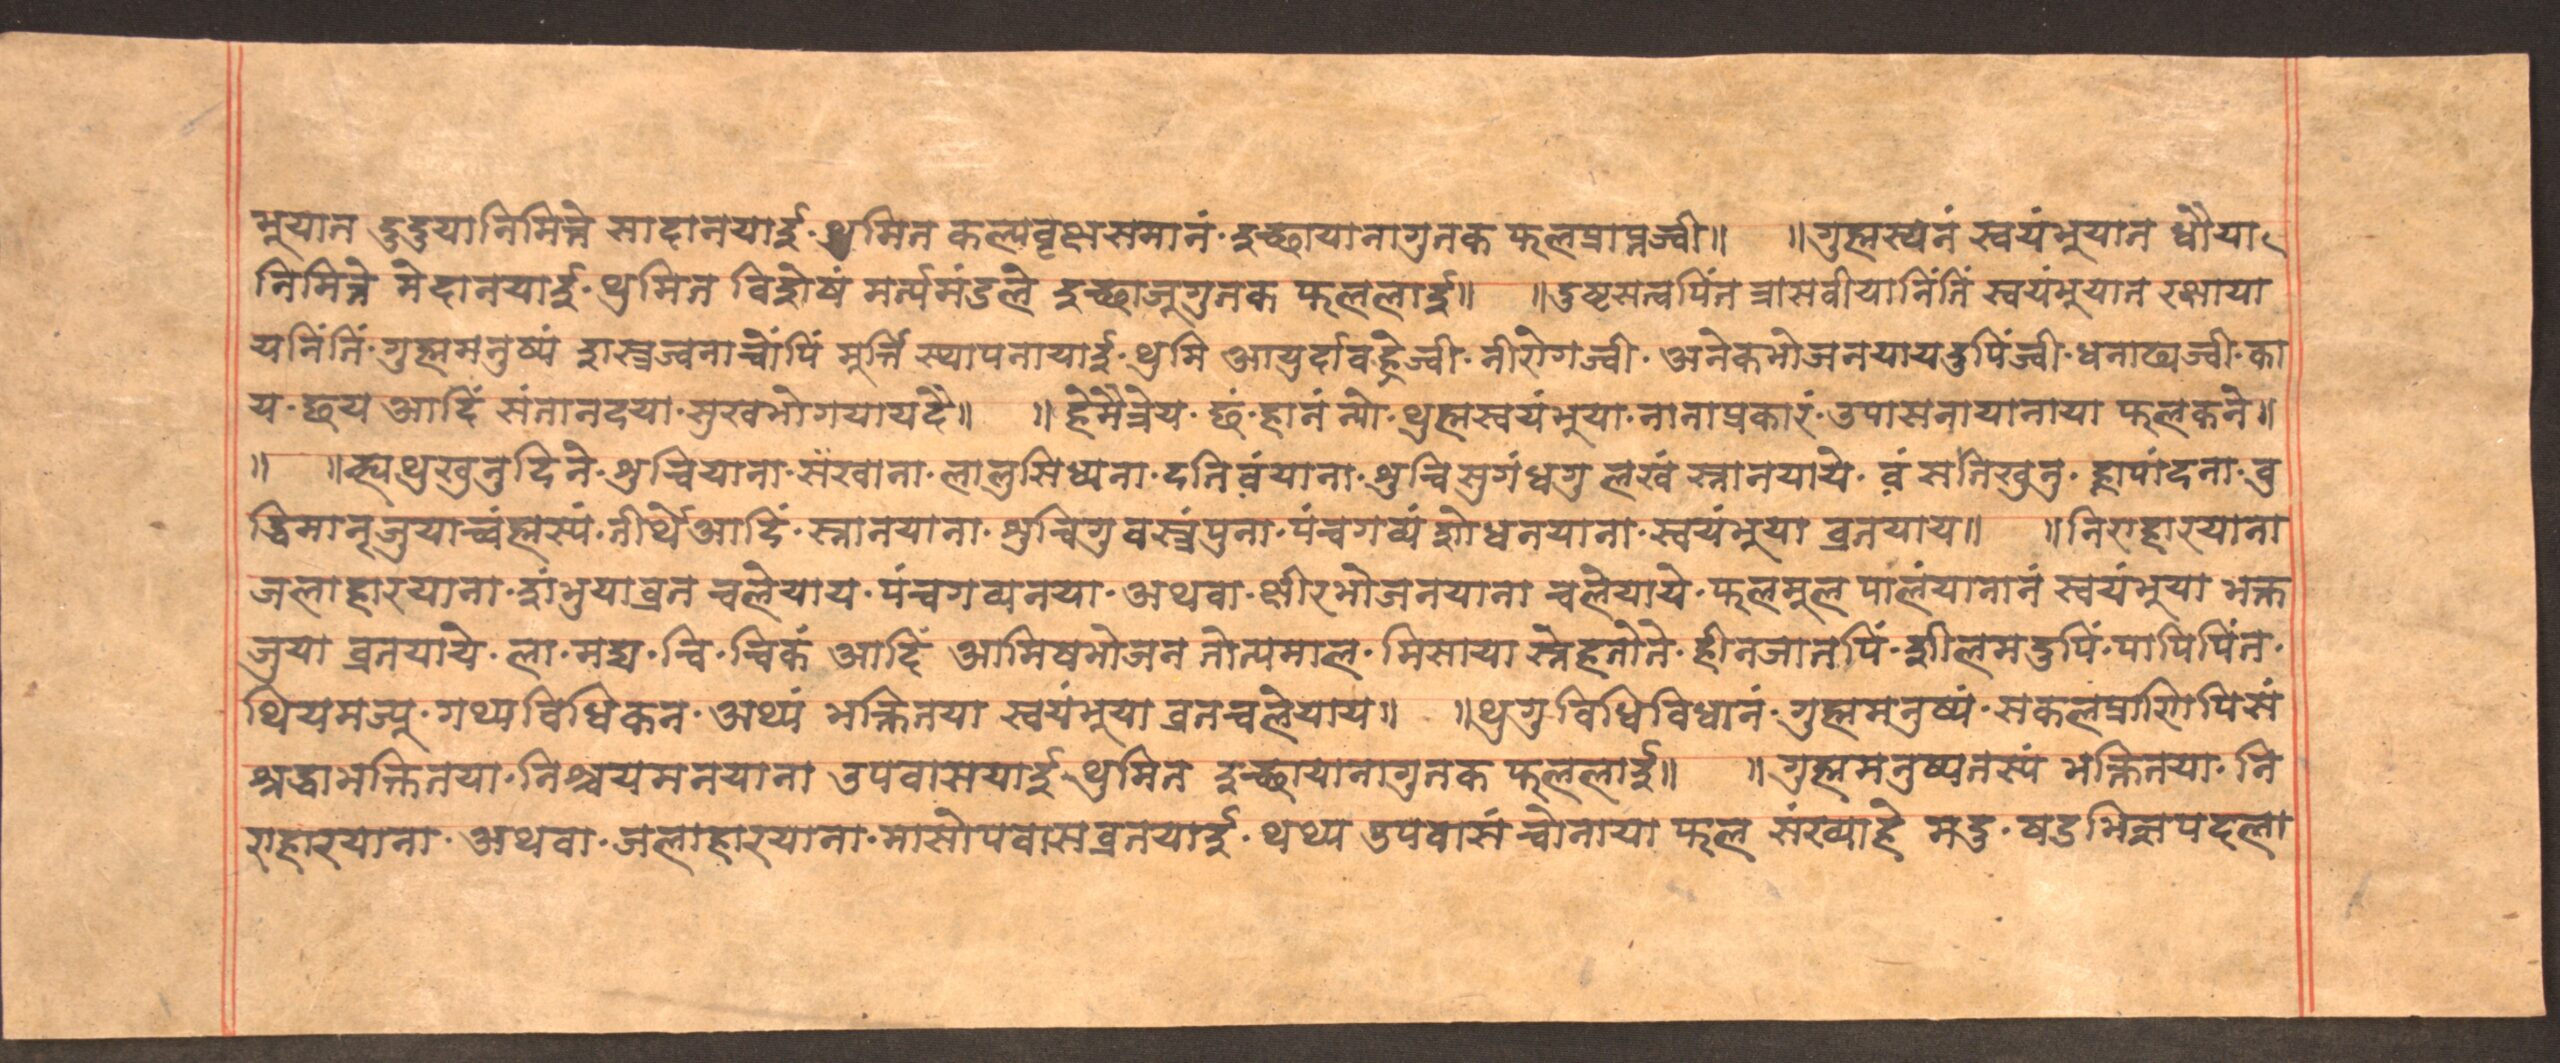 भुयान दुदुयानिमित्ने सादानयाई॰ थुमित कल्पवृक्षसमानं॰ इच्छायानागुतक फलप्राप्तज्वी॥ ॥गुह्मस्यनं स्वयंभुयान ध्वौया
निमित्ने मेदानयाई॰ थुमित विशेषं मर्त्यमंडले इच्छाजुगुतक फललाई॥ ॥दुष्टसत्वपिंत त्रासवीयानिंतिं स्वयंभुयान रक्षाया
यनिंतिं॰ गुह्ममनुष्यं शस्त्रज्वनाच्वोंपिं मुर्त्ति स्थापनायाई॰ थुमि आयुर्दावह्रेज्वी॰ नीरोगज्वी॰ अनेकभोजनयायदुपिंज्वी॰ धनाढ्यज्वी॰ का
य॰ छय आदिं संतानदया॰ सुखभोगयायदै॥ ॥हेमैत्रेय॰ छं॰ हानं न्यो॰ थ्रुह्मस्वयंभुया॰ नानाप्रकारं॰ उपासनायानाया फलकने॥
॥ ॥ह्यथुखुनुदिने॰ शुचियाना॰ संखाना॰ लालुसिध्यना॰ दतिवंयाना॰ शुचिसुगंधगु लखं स्नानयाये॰ वं सतिखुनु॰ ह्नापांदना॰ बु
द्धिमानजुयाच्वंह्मस्यं॰ तीर्थेआदिं॰ स्नानयाना॰ शुचिगु वस्त्रंपुना॰ पंचगव्यं शोधनयाना॰ स्वयंभुया व्रतयाय॥ ॥निराहारयाना
जलाहारयाना॰ शंभुयाव्रत चलेयाय॰ पंचगव्यनया॰ अथवा॰ क्षीरभोजनयाना चलेयाये॰ फलमुल पालंयानानं स्वयंभुया भक्त
जुया व्रतयाये॰ ला॰ मद्य॰ चि॰ चिकं आदिं आमिषभोजन तोत्यमाल॰ मिसाया स्नेहतोते॰ हीनजातपिं॰ शीलमदुपिं॰ पापिपिंत॰
थियमज्यु॰ गथ्यविधिकन॰ अथ्यं भक्तितया स्वयंभुया व्रतचलेयाय॥ ॥थुगु विधिविधानं॰ गुह्ममनुष्यं॰ सकलप्राणिपिसं
श्रद्धाभक्तितया॰ निश्चयमनयाना उपवासयाई॰ थुमित इच्छायानागुतक फललाई॥ ॥गुह्ममनुष्यतस्यं भक्तितया॰ नि
राहारयाना॰ अथवा॰ जलाहारयाना॰ मासोपवासव्रतयाई॰ थथ्य उपवासं च्वोनाया फल संख्याहे मदु॰ षडभिज्ञपदला